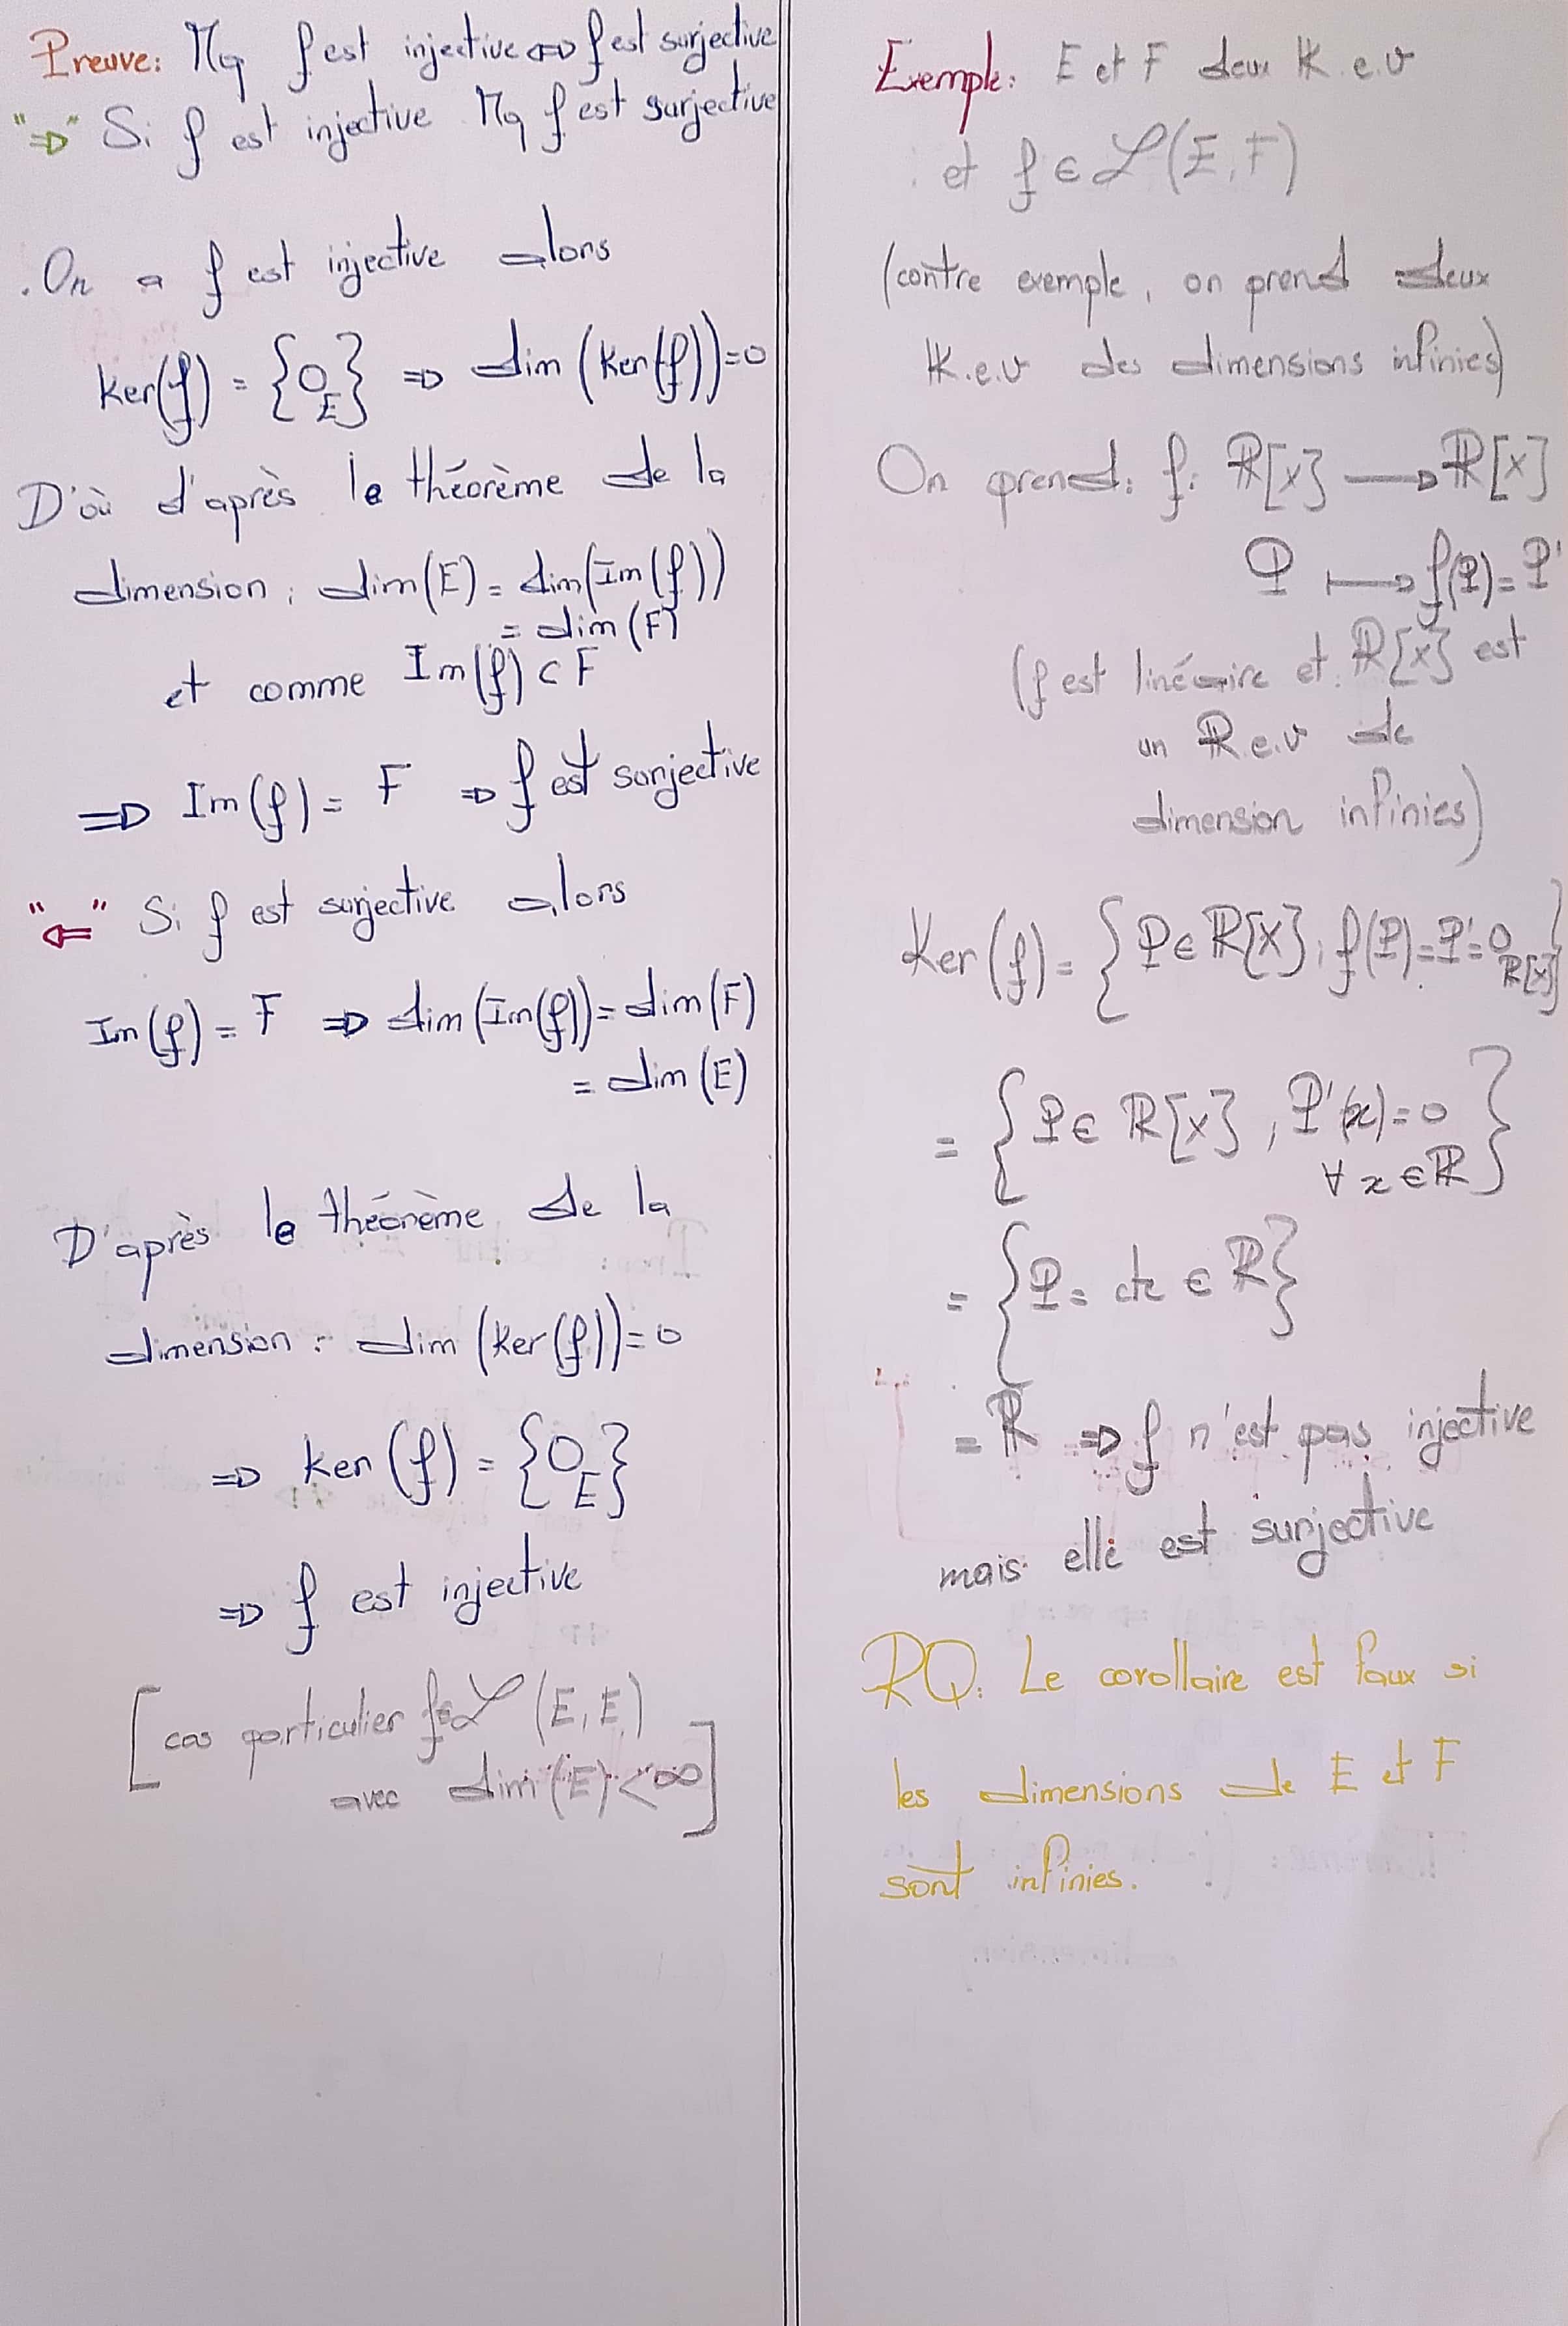 Preuve: Mq f est injective ⇔ f est surjective
"⇒" Si f est injective Mq f est surjective
. On a f est injective alors
Ker(f) = {0_E} ⇒ dim (Ker(f)) = 0
D'où d'après le théorème de la
dimension : dim(E) = dim(Im(f))
= dim(F)
et comme Im(f) ⊂ F
⇒ Im(f) = F ⇒ f est surjective
"⇐" Si f est surjective alors
Im(f) = F ⇒ dim(Im(f)) = dim(F)
= dim(E)
D'après le théorème de la
dimension : dim (Ker(f)) = 0
⇒ Ker(f) = {0_E}
⇒ f est injective
[cas particulier f ∈ ℒ(E,E)
avec dim(E) < ∞]
Exemple: E et F deux K.e.v
et f ∈ ℒ(E,F)
(contre exemple, on prend deux
K.e.v des dimensions infinies)
On prend: f: ℝ[X] → ℝ[X]
P ↦ f(P) = P'
(f est linéaire et ℝ[X] est
un ℝ e.v de
dimension infinies)
Ker(f) = {P ∈ ℝ[X], f(P) = P' = 0_ℝ[X]}
= {P ∈ ℝ[X], P'(x) = 0
∀ x ∈ ℝ}
= {P = cte ∈ ℝ}
= ℝ ⇒ f n'est pas injective
mais elle est surjective
RQ: Le corollaire est faux si
les dimensions de E et F
sont infinies.